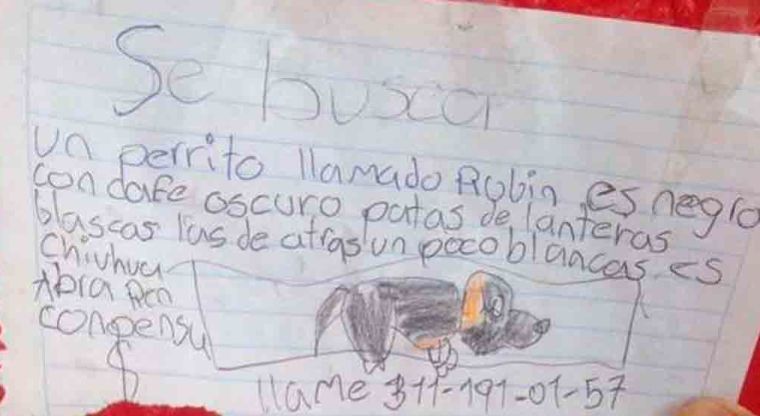 Se busca
un perrito llamado Robin es negro
con cafe oscuro patas de lanteras
blascas las de atras un poco blancas es
chihua
Abra Ren
conpensa
$
llame 311-191-01-57